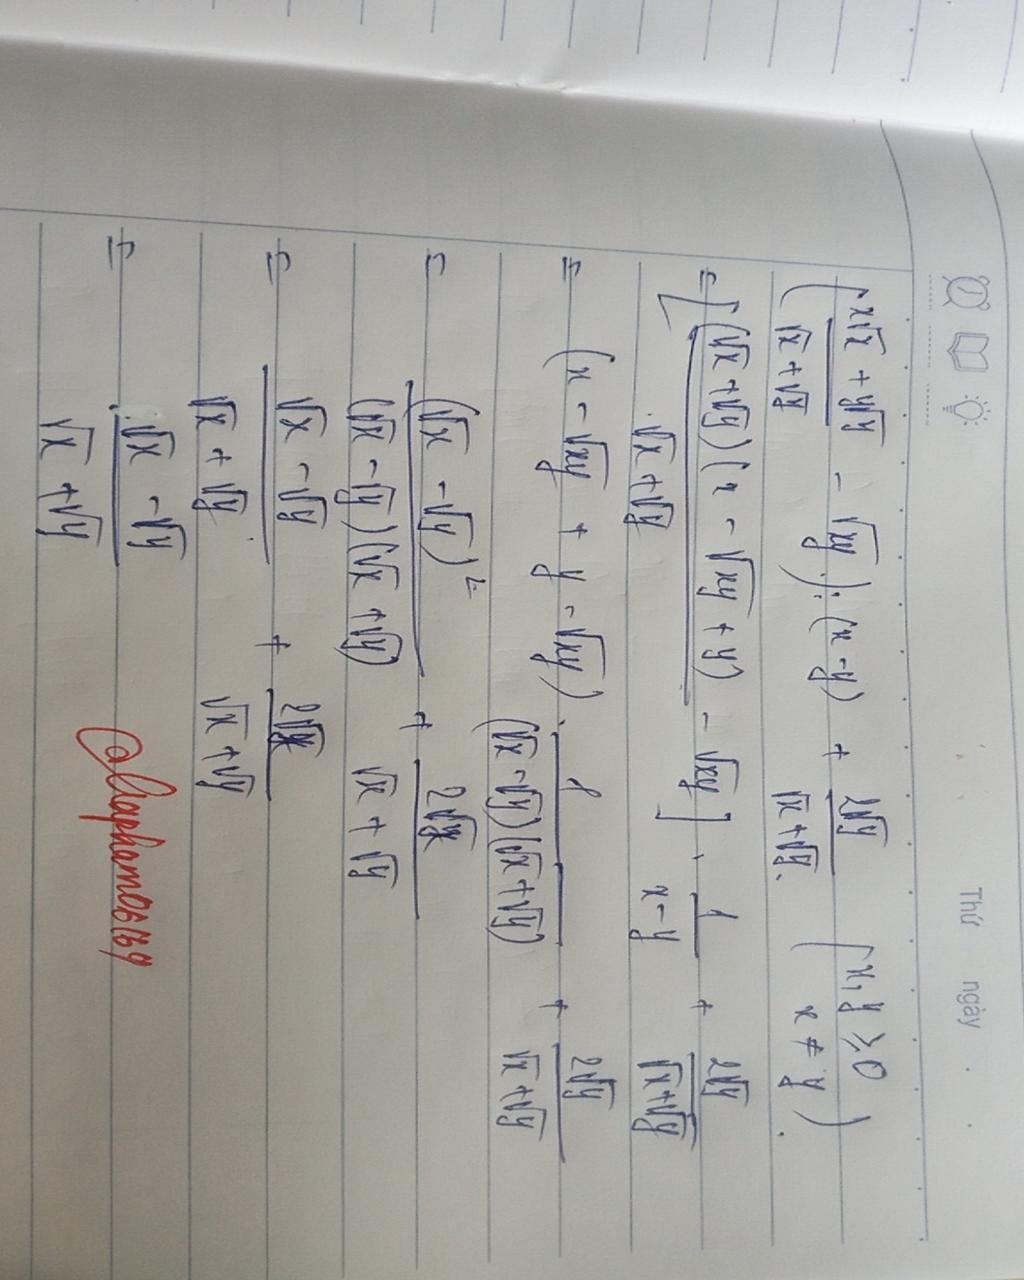 Thứ ngày
(x√x + y√y / √x + √y - √xy) : (x - y) + 2√y / √x + √y. (x, y ≥ 0 x ≠ y).
= [(√x + √y)(x - √xy + y) / √x + √y - √xy] . 1 / x - y + 2√y / √x + √y
= (x - √xy + y - √xy) . 1 / (√x - √y)(√x + √y) + 2√y / √x + √y
= (√x - √y)² / (√x - √y)(√x + √y) + / √x + √y
= √x - √y / √x + √y + / √x + √y
= √x - √y / √x + √y